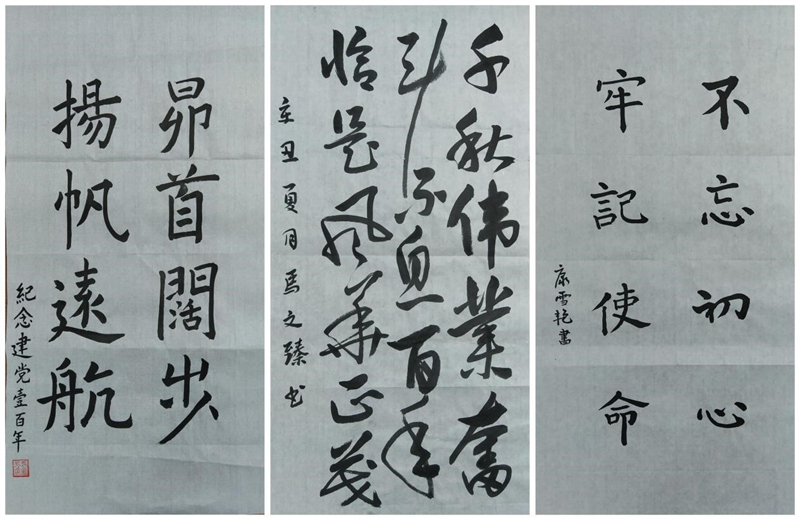 昂首闊步
揚帆遠航
紀念建党壹百年
千秋伟業奮
斗不息百年
恰是风華正茂
辛丑夏月馬文臻书
不忘初心
牢記使命
康雪艳書